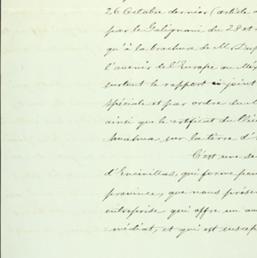 26 Octobre dernier (article
par le Galignani du 28 et
qu'à la brochure de M. Dup
l'avenir de l'Europe au
surtout le rapport ci joint
spéciale et par ordre de
ainsi que le certificat du
sur la terre d'
C'est une
d'Encinillas, qui forme
province, que nous
entreprise qui offre un
médiat, et qui est